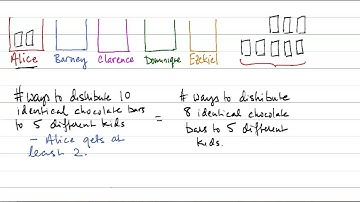 Alice Barney Clarence Dominique Ezekiel
# ways to distribute 10
identical chocolate bars
to 5 different kids
- Alice gets at
least 2.
=
# ways to distribute
8 identical chocolate
bars to 5 different
kids.